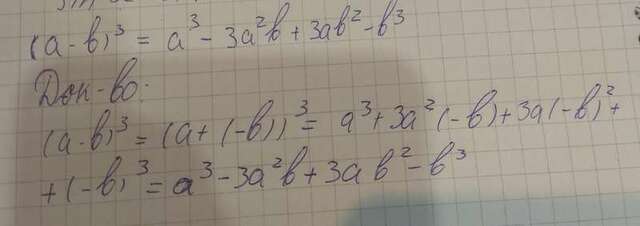 (a-b)³ = a³ - 3a²b + 3ab² - b³
Док-во:
(a-b)³ = (a + (-b))³ = a³ + 3a²(-b) + 3a(-b)² +
+ (-b)³ = a³ - 3a²b + 3ab² - b³